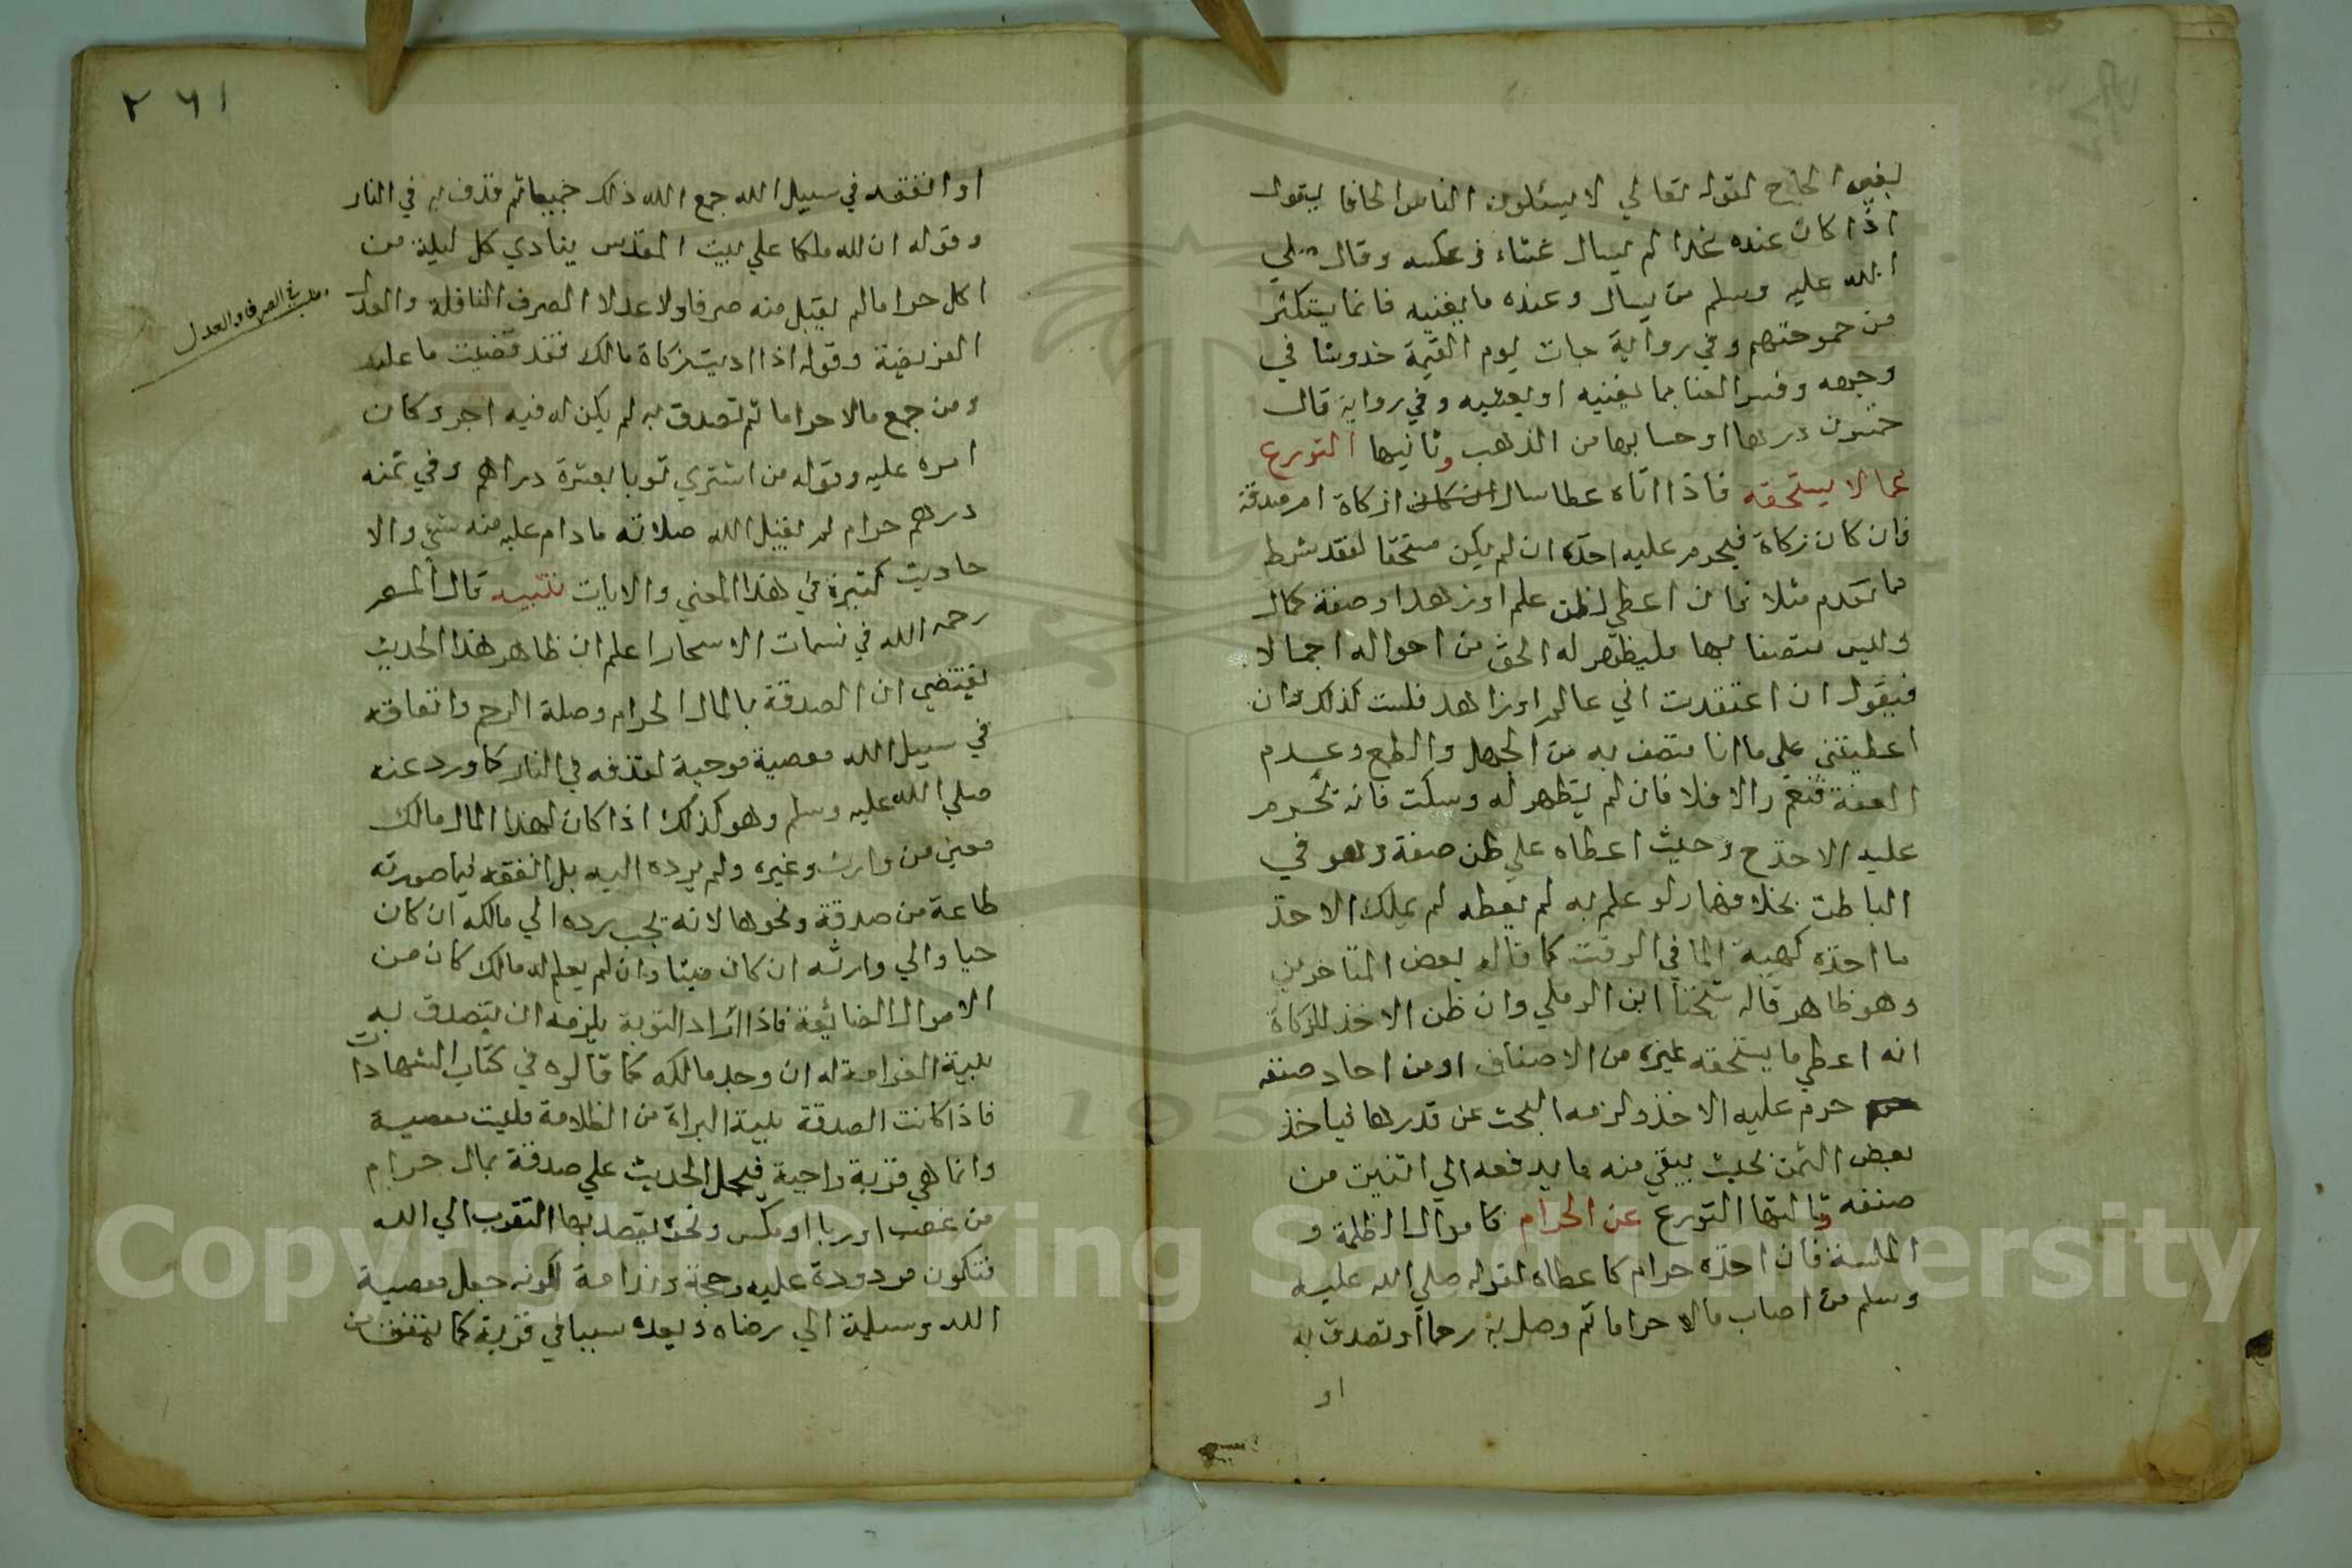 بغير الحاح لقوله تعالي لا يسئلون الناس الحافا يقول
اذا كان عنده غدا لم يسال عشاء وعكسه وقال صلي
الله عليه وسلم من يسال وعنده ما يغنيه فانما يتكثر
من جهنم وفي رواية جات يوم القيمة خدوشا في
وجهه وفسر الغنا بما يغنيه او يعشيه وفي رواية قال
خمسون درهما او حسابها من الذهب وثانيها التورع
عما لا يستحقه فاذا اتاه عطا سال ازكاة ام صدقة
فان كان زكاة فيحرم عليه اخذه ان لم يكن مستحقا لفقد شرط
مما تقدم مثلا فان اعطي لظن علم او زهد او صفة كمال
وليس متصفا بها فليظهر له الحق من احواله اجمالا
فيقول ان اعتقدت اني عالم او زاهد فلست كذلك وان
اعطيتني علي ما انا متصف به من الجهل والطمع وعدم
العفة فنعم والا فلا فان لم يظهر له وسكت فانه يحرم
عليه الاخذ ح وحيث اعطاه علي ظن صفة وهو في
الباطن بخلافها ولو علم به لم يعطه لم يملك الاخذ
ما اخذه كهبة الما في الوقت كما قاله بعض المتاخرين
وهو ظاهر قاله شيخنا ابن الرملي وان ظن الاخذ للزكاة
انه اعطي ما يستحقه غيره من الاصناف او من احاد صنفه
حرم عليه الاخذ ولزمه البحث عن قدرها فياخذ
بعض الثمن بحيث يبقي منه ما يدفعه الي اثنين من
صنفه وثالثها التورع عن الحرام كاموال الظلمة و
فان اخذه حرام كاعطاه لقوله صلي الله عليه
وسلم من اصاب مالا حراما ثم وصل به رحما او تصدق به
او
٢٦١
او انفقه في سبيل الله جمع الله ذلك جميعا ثم قذف به في النار
وقوله ان لله ملكا علي بيت المقدس ينادي كل ليلة من
اكل حراما لم يقبل منه صرفا ولا عدلا الصرف النافلة والعدل
الفريضة وقوله اذا اديت زكاة مالك فقد قضيت ما عليك
ومن جمع مالا حراما ثم تصدق به لم يكن له فيه اجر وكان
اصره عليه وقوله من اشتري ثوبا بعشرة دراهم وفي ثمنه
درهم حرام لم يقبل الله صلاته ما دام عليه منه شي والا
حاديث كثيرة في هذا المعني والايات تنبيه قال المص
رحمه الله في نسمات الاسحار اعلم ان ظاهر هذا الحديث
يقتضي ان الصدقة بالمال الحرام وصلة الرحم وانفاقه
في سبيل الله معصية موجبة لقذفه في النار كما ورد عنه
صلي الله عليه وسلم وهو كذلك اذا كان لهذا المال مالك
معين من وارث وغيره ولم يرده اليه بل انفقه فيما صورته
طاعة من صدقة ونحوها لانه يجب رده الي مالكه ان كان
حيا والي وارثه ان كان ميتا وان لم يعلم له مالك كان من
الاموال الضائعة فاذا اراد التوبة يلزمه ان يتصدق به
بنية الغرامة له ان وجد مالكه كما قالوه في كتاب الشهادات
فاذا كانت الصدقة بنية البراة من الظلامة فليست معصية
وانما هي قربة واجبة فيحمل الحديث علي صدقة بمال حرام
من غصب او ربا او مكس ونحوه يقصد بها التقرب الي الله
فتكون مردودة عليه وحجة وندامة لكونه جعل معصية
الله وسيلة الي رضاه وبعده سببا في قربة كما يتفق من
مطلب في الصرف والعدل
Copyright © King Saud University
1957